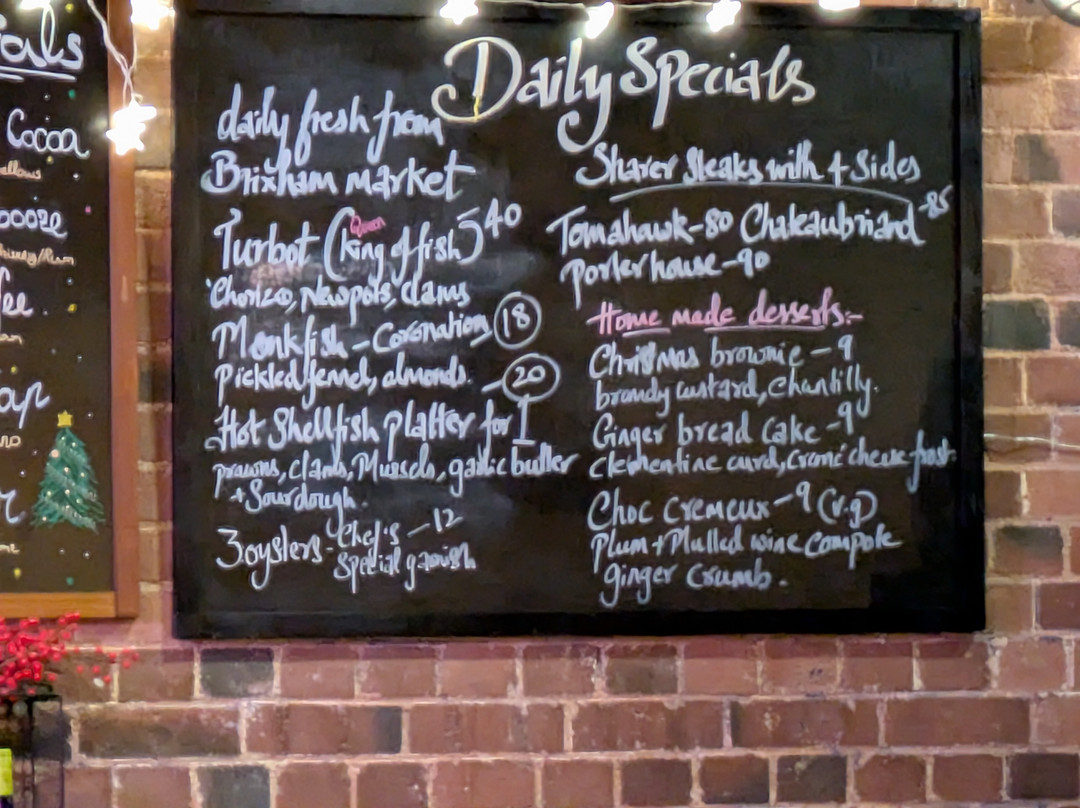 Daily Specials
daily fresh from
Brixham market
Turbot (King of fish) 40
Queen
Chorizo, New pots, clams
Monkfish - Coronation, 18
Pickled fennel, almonds.
Hot Shellfish platter for 1 - 20
prawns, clams, Mussels, garlic butter
+ Sourdough.
3 oysters - Chef's - 12
Special garnish
Sharer Steaks with 4 Sides
Tomahawk - 80 Chateaubriand - 85
Porterhouse - 90
Home made desserts:-
Christmas brownie - 9
brandy custard, chantilly.
Ginger bread Cake - 9
Clementine curd, cheese frost.
Choc cremeux - 9 (v.g)
Plum + Mulled wine Compote
ginger crumb.
Cocoa